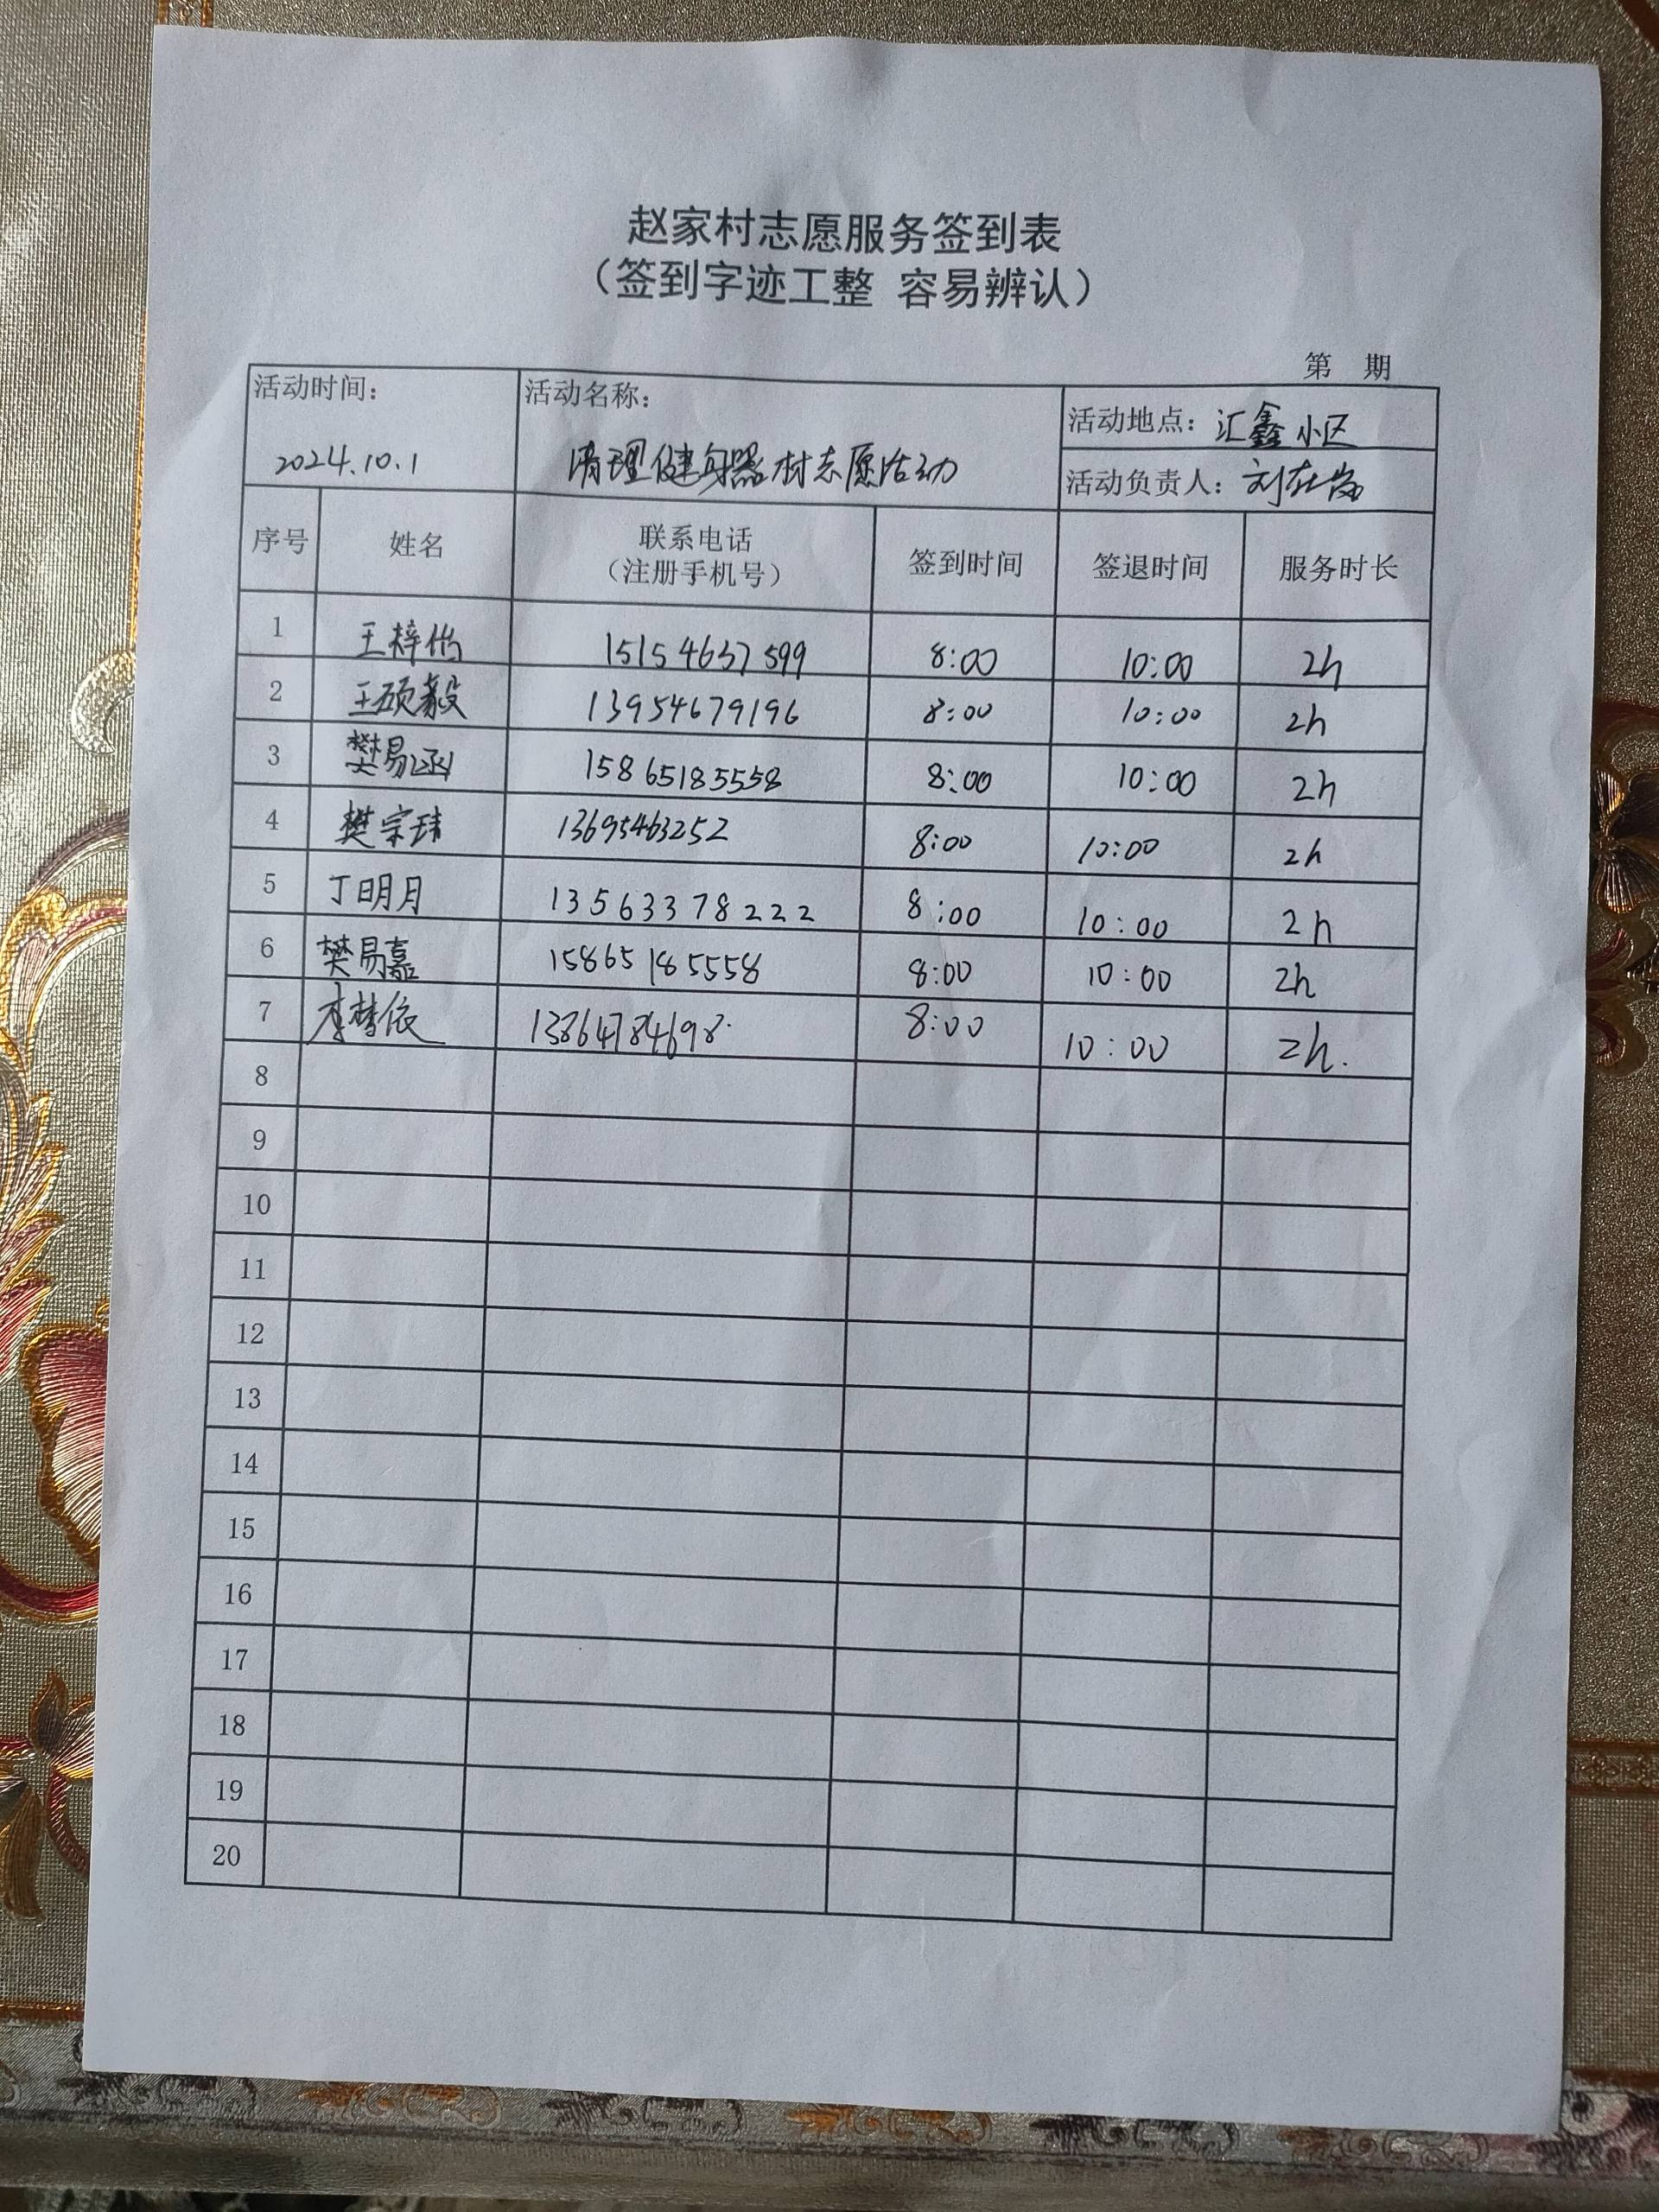 赵家村志愿服务签到表
（签到字迹工整 容易辨认）
第 期
活动时间： 活动名称： 活动地点：汇鑫小区
2024.10.1 清理健身器材志愿活动 活动负责人：刘在
序号 姓名 联系电话 签到时间 签退时间 服务时长
（注册手机号）
1 王梓怡 15154637599 8:00 10:00 2h
2 王硕毅 13954679196 8:00 10:00 2h
3 樊易函 15865185558 8:00 10:00 2h
4 樊宗玮 13695463252 8:00 10:00 2h
5 丁明月 13563378222 8:00 10:00 2h
6 樊易嘉 15865185558 8:00 10:00 2h
7 李梦依 13864784698 8:00 10:00 2h.
8
9
10
11
12
13
14
15
16
17
18
19
20